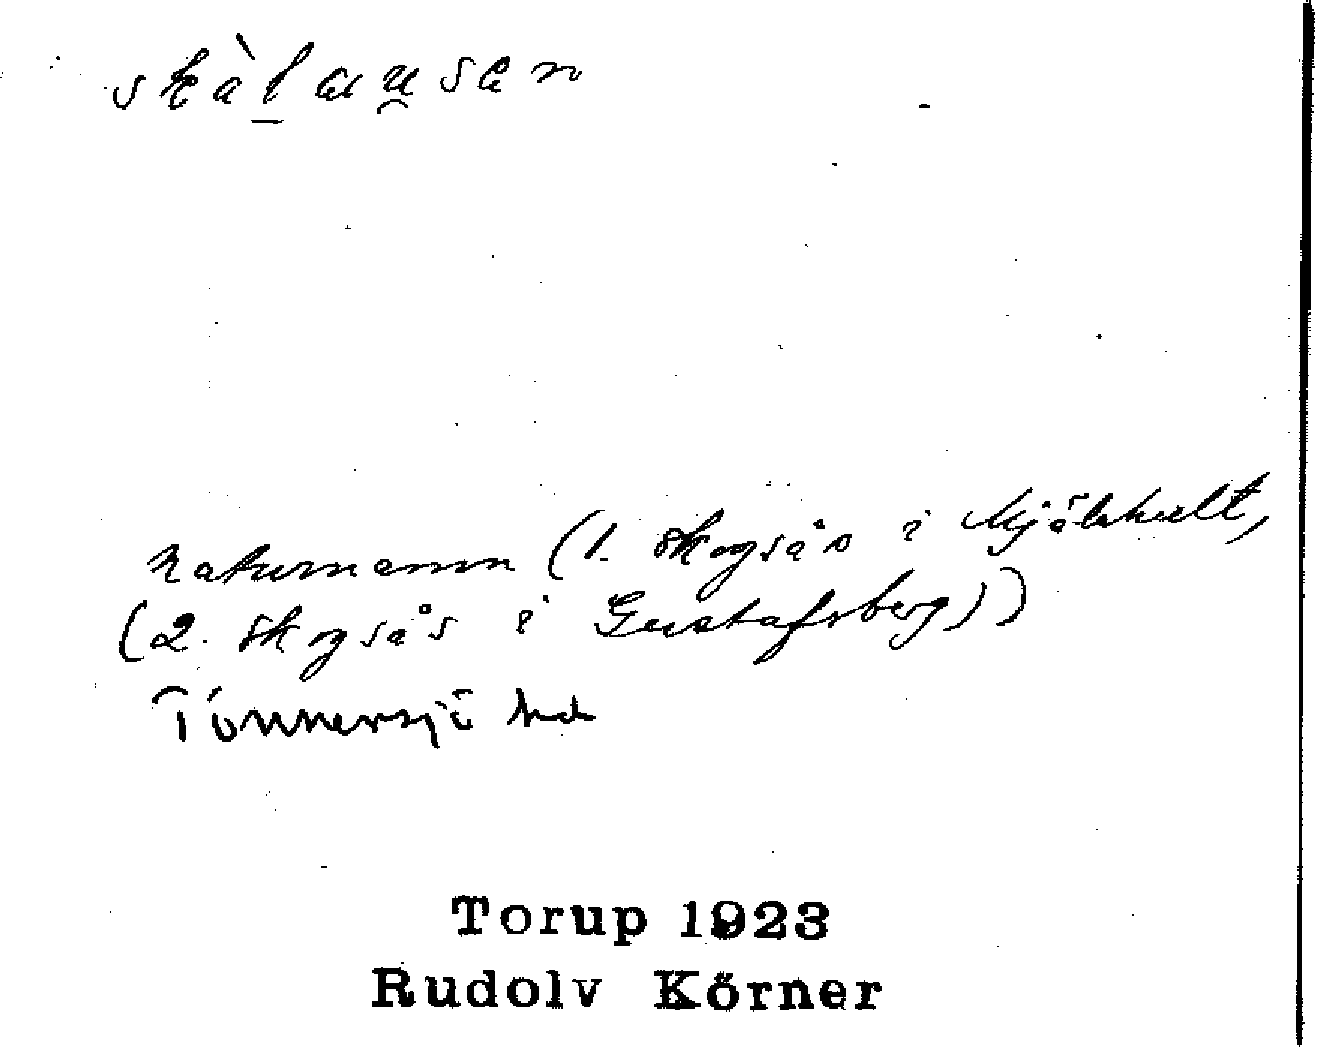 skàlausen
naturnamn (1. skogsås i Mjälahult,
(2. skogsås i Gustafsberg))
Tönnersjö hd
Torup 1923
Rudolv Körner